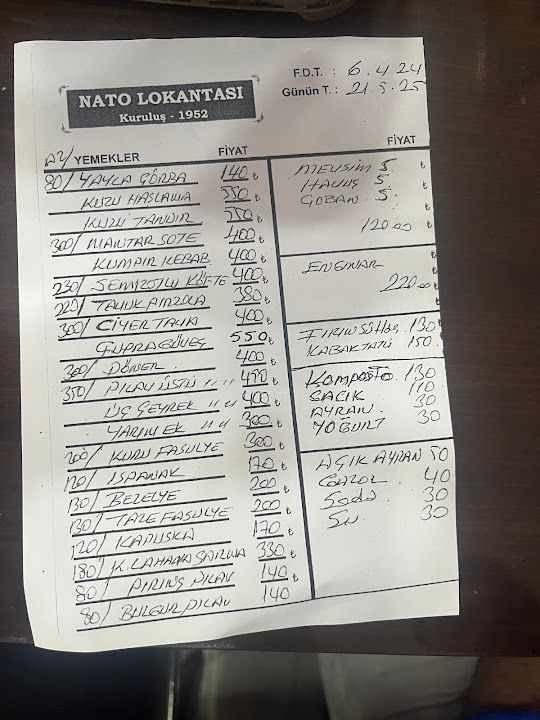 NATO LOKANTASI
Kuruluş - 1952
F.D.T. : 6.4.24
Günün T. : 21.5.25
AZ/ YEMEKLER FİYAT
80/ YAYLA ÇORBA 140 ₺
KUZU HAŞLAMA 550 ₺
KUZU TANDIR 550 ₺
300/ MANTAR SOTE 400 ₺
KUMPIR KEBAB 400 ₺
230/ SEMIZOTLU KÖFTE 400 ₺
220/ TAVUK PIRZOLA 380 ₺
300/ CİYER TAVA 400 ₺
ÇUPRA GÜVEÇ 550 ₺
300/ DÖNER 400 ₺
350/ PILAV ÜSTÜ " " 450 ₺
ÜÇ ÇEYREK " " 400 ₺
YARIM EK " " 300 ₺
200/ KURU FASULYE 300 ₺
120/ ISPANAK 170 ₺
130/ BEZELYE 200 ₺
130/ TAZE FASULYE 200 ₺
120/ KAPUSKA 170 ₺
180/ K.LAHANA SARMA 330 ₺
80/ PIRINÇ PILAV 140 ₺
80/ BULGUR PILAV 140
FİYAT
MEVSİM S. ₺
HAVUÇ S. ₺
ÇOBAN S. ₺
120.00 ₺
ENGINAR ₺
220.00 ₺
FIRIN SÜTLAÇ 130 ₺
KABAK TATLI 150 ₺
Komposto 130
CACIK 110
AYRAN 30
YOĞURT 30
AÇIK AYRAN 50
GAZOZ 40
Soda 30
Su 30